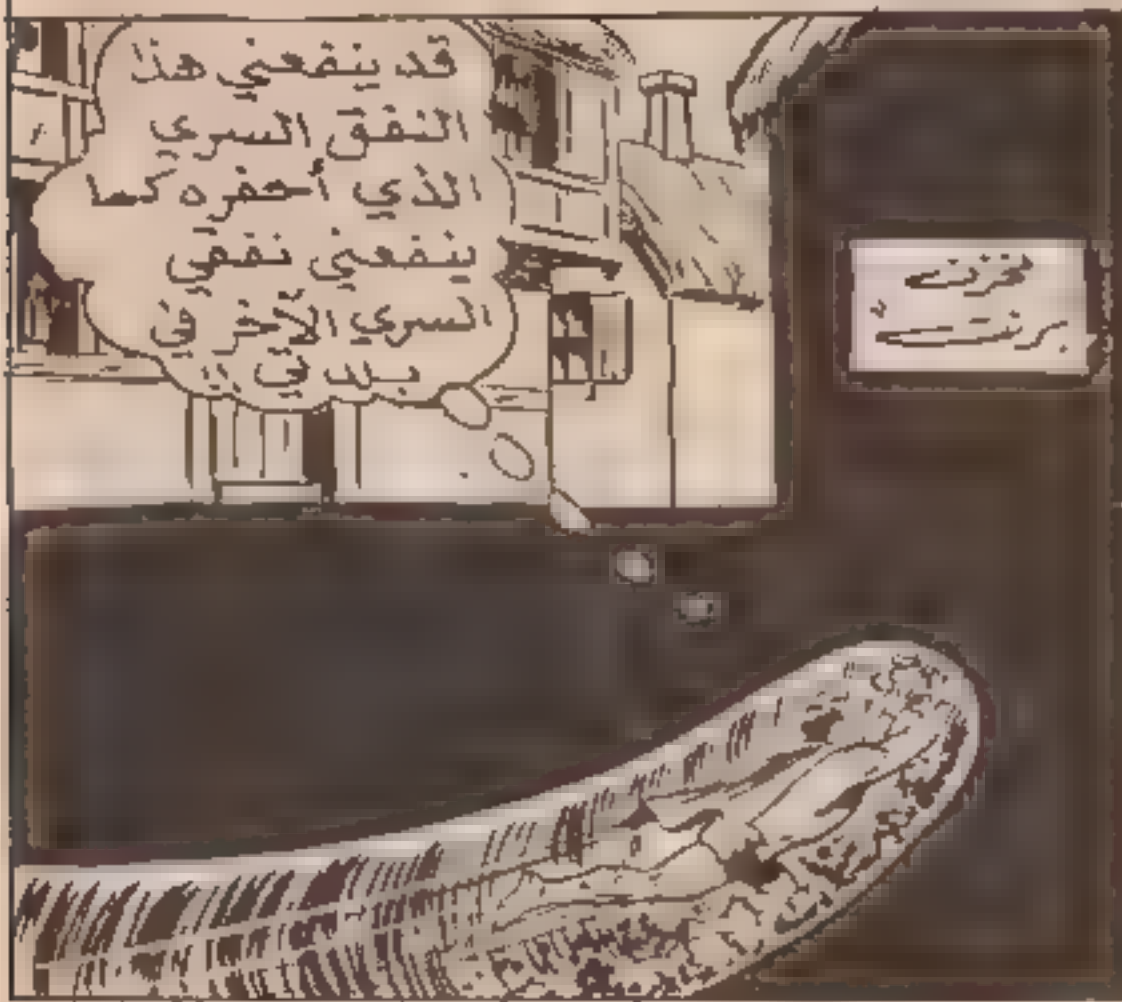 قد ينفعني هذا
النفق السري
الذي أحفره كما
ينفعني نفقي
السري الآخر في
بلدتي !!